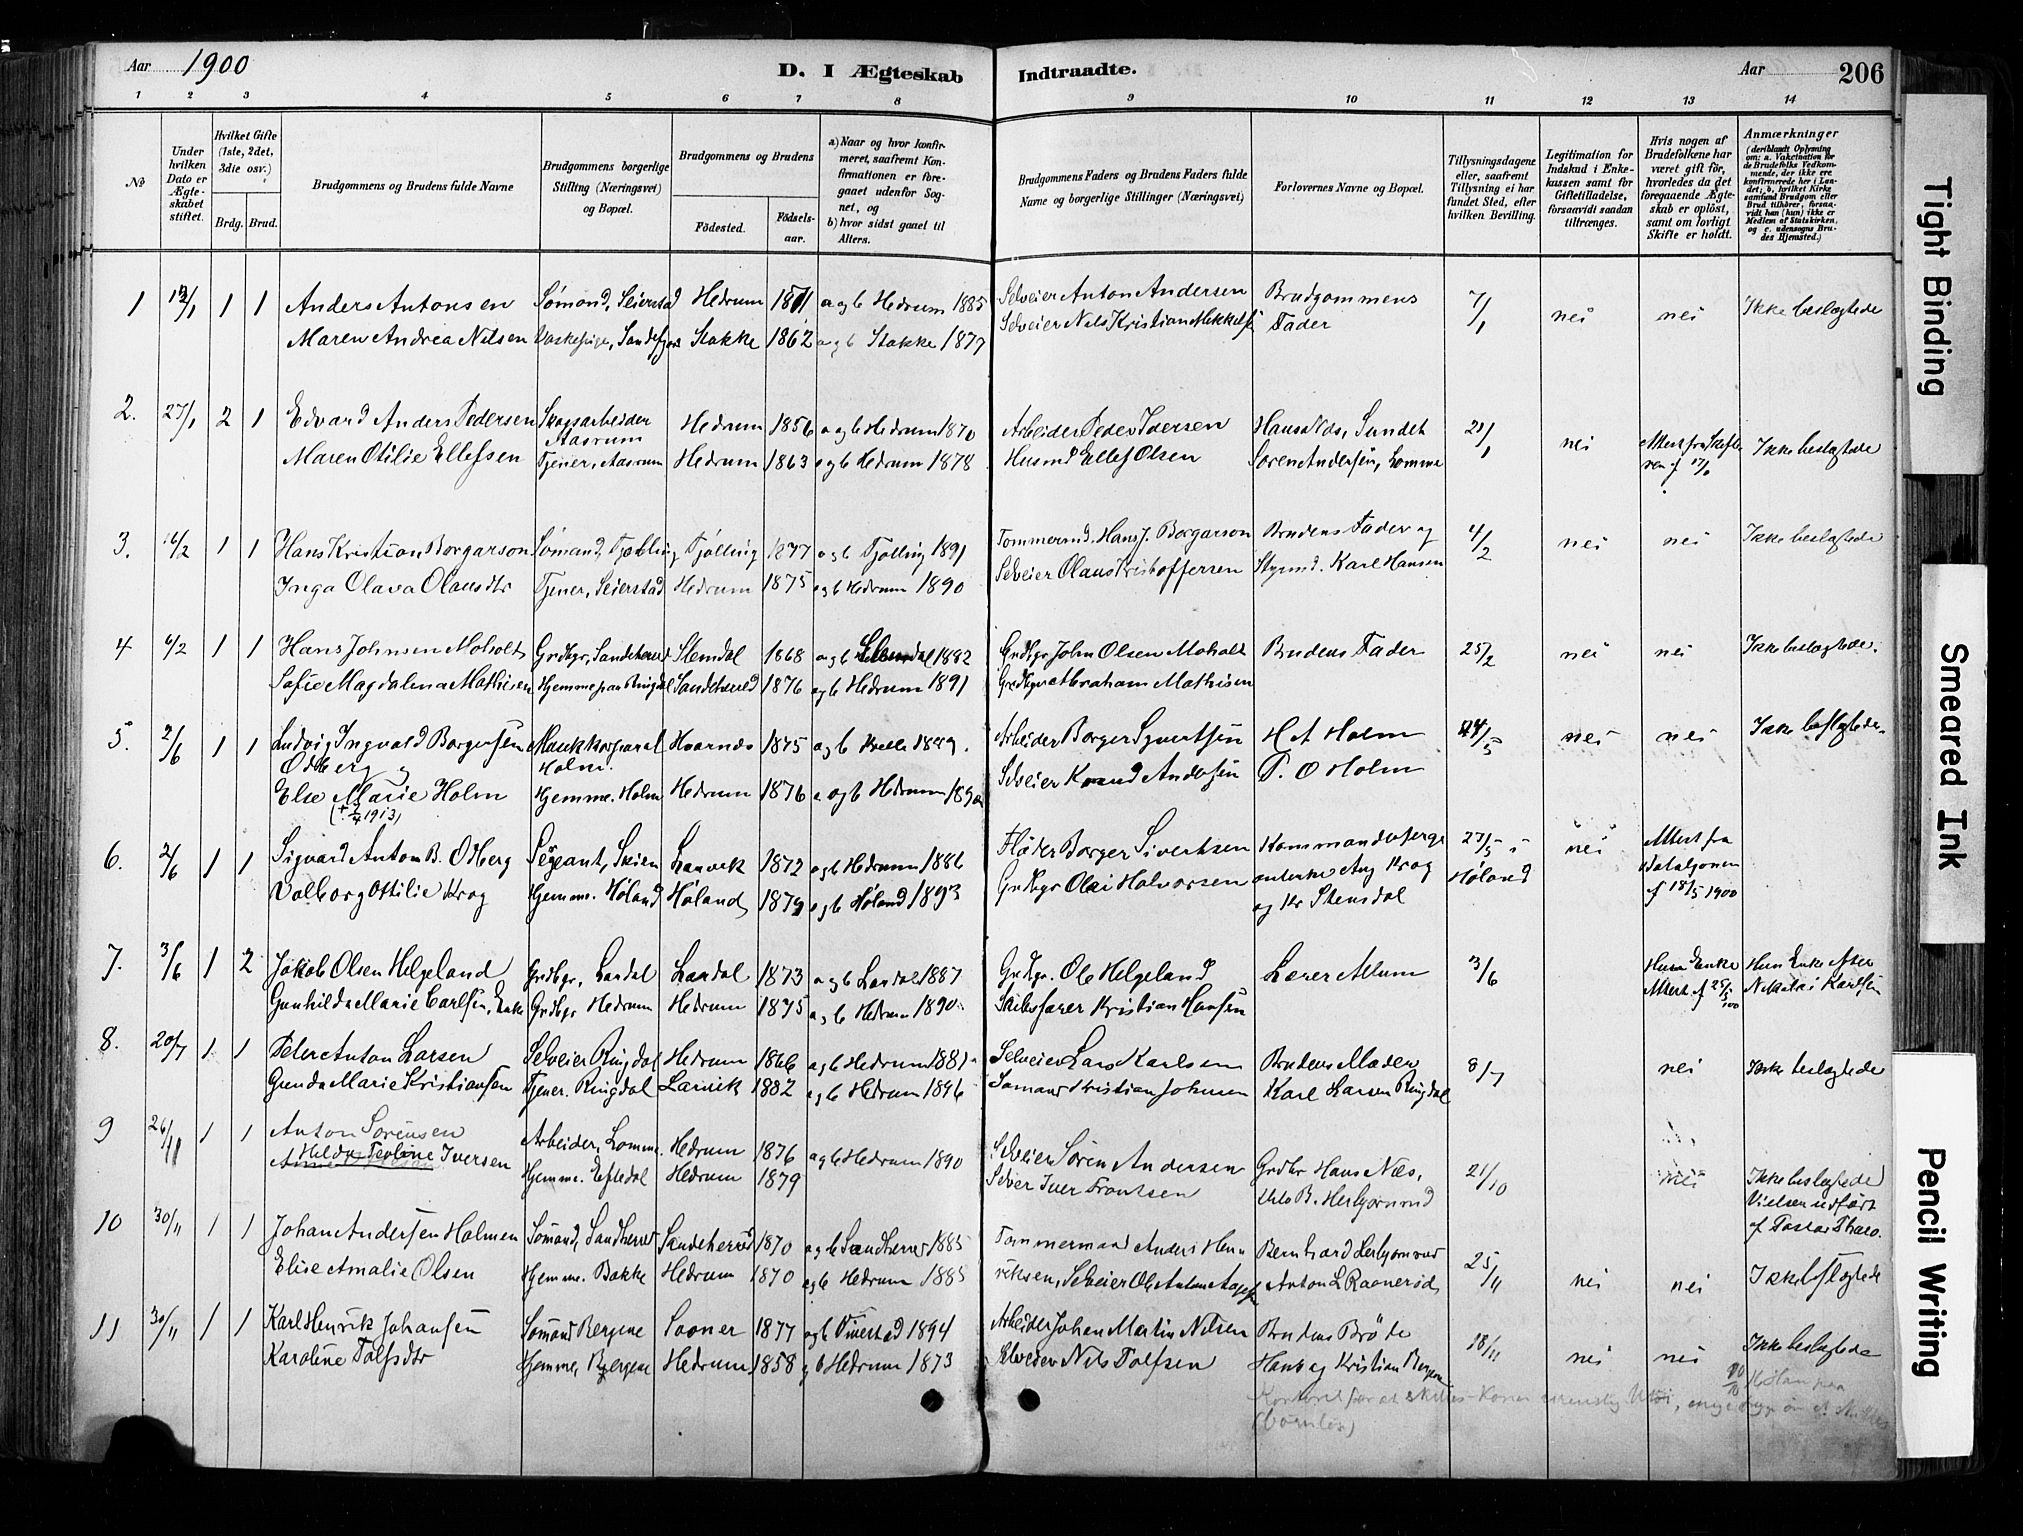 Aar 1900 D. I Ægteskab Indtraadte. Aar 206
1 2 3 4 5 6 7 8 9 10 11 12 13 14
No
Under hvilken Dato er Ægteskabet stiftet.
Hvilket Gifte (1ste, 2det, 3die osv.)
Brdg. Brud.
Brudgommens og Brudens fulde Navne
Brudgommens borgerlige Stilling (Næringsvei) og Bopæl.
Brudgommens og Brudens
Födested.
Födselsaar.
a) Naar og hvor konfirmeret, saafremt Konfirmationen er foregaaet udenfor Sognet, og
b) hvor sidst gaaet til Alters.
Brudgommens Faders og Brudens Faders fulde Navne og borgerlige Stillinger (Næringsvei)
Forlovernes Navne og Bopæl.
Tillysningsdagene eller, saafremt Tillysning ei har fundet Sted, efter hvilken Bevilling.
Legitimation for Indskud i Enkekassen samt for Giftetilladelse, forsaavidt saadan tiltrænges.
Hvis nogen af Brudefolkene har været gift før, hvorledes da det foregaaende Ægteskab er oplöst, samt om lovligt Skifte er holdt.
Anmærkninger
1 1 1 Anders Antonsen Sømand, Seierstad Hedrum 1871 a og b Hedrum 1885 Selveier Anton Andersen Brudgommens 7/1 nei nei Ikke beslægtede
Maren Andrea Nilsen Stokke 1862 a og b Stokke 1877 Selveier Nils Kristian Mikkelsen Fader
2. 27/1 2 1 Edvard Anders Pedersen Skogsarbeider Aasrum Hedrum 1856 a og b Hedrum 1870 Arbeider Peder Iversen Hans Næs, Sundet 21/1 nei Ikke beslægtede
Maren Otilie Ellefsen Tjener, Aasrum Hedrum 1863 a og b Hedrum 1878 Husmd Ellef Olsen Søren Andersen, Lomme
3. 16/2 1 1 Hans Kristian Borgarson Sømand, Tjølling Tjølling 1877 a og b Tjølling 1891 Tømmermd. Hans J. Borgarson Brudens Fader og 4/2 nei nei Ikke beslægtede
Inga Olava Olausdtr Tjener, Seierstad Hedrum 1875 a og b Hedrum 1890 Selveier Olaus Kristoffersen Styrmd. Karl Hansen
4 6/2 1 1 Hans Johnsen Moholt Grdbgr, Sandeherred Slemdal 1868 a og b Slemdal 1882 Grdbgr John Olsen Moholt Brudens Fader 25/2 nei nei Ikke beslægtede.
Sofie Magdalena Mathisen Hjemme paa Ringdal Sandeherred 1876 a og b Hedrum 1891 Grdbgr Abraham Mathisen
5. 2/6 1 1 Ludvig Ingvald Borgersen Odberg Holm. Kvarnes 1875 a og b 1889. Arbeider Borger Syvertsen H A Holm nei nei Ikke beslægtede.
Else Marie Holm Hjemme. Holm Hedrum 1876 a og b Hedrum Selveier Andersen T. O Holm
(+ 2/4 1913)
6. 2/6 1 1 Sigvard Anton B. Odberg Sergeant, Skien Laurvik 1872 a og b Hedrum 1886 Fløder Borger Sivertsen Kommandersergeant 27/5 i Høland nei Attest fra Bataljonen af 18/5 1900
Valborg Ottilie Krog Hjemme. Høland Høland 1879 a og b Høland 1893 Grdbgr Olai Halvorsen Aug Krog og Kr Stensdal
7. 3/6 1 2 Jakob Olsen Helgeland Grdbgr, Lardal Lardal 1873 a og b Lardal 1887 Grdbgr. Ole Helgeland Lærer Allum 3/6 Hun Enke Attest af Hun Enke efter Nikolai Karlsen
Gunhilda Marie Carlsen, Enke Grdbgr Hedrum Hedrum 1875 a og b Hedrum 1890. Skibsfører Kristian Hansen
8. 20/7 1 1 Peter Anton Larsen Selveier Ringdal Hedrum 1866 a og b Hedrum 1881 Selveier Lars Karlsen Brudens Moder 8/7 nei Ikke beslægtede
Gunda Marie Kristiansen Tjener. Ringdal Larvik 1882 a og b Hedrum 1896 Sømand Kristian Johnsen Karl Larsen Ringdal
9 26/11 1 1 Anton Sørensen Arbeider, Lomme. Hedrum 1876 a og b Hedrum 1890 Selveier Søren Andersen Grdbr Hans Næs, 21/10 nei Ikke beslægtede
Hilda Iversen Hjemme. Eftedal Hedrum 1879 Selveier Iver Frantsen Vielsen udført af Pastor Tharo.
10 30/11 1 1 Johan Andersen Holmen Sømand, Sandherred Sandeherred 1870 a og b Sandherred 1885 Tømmermand Anders Henriksen, 25/11 nei nei Ikke beslægtede
Elise Amalie Olsen Hjemme. Bakke Hedrum 1870 a og b Hedrum 1885 Selveier Ole Anton Anton L Raanerød
11 30/11 1 1 Karl Henrik Johansen Sømand Bergene Sooner 1877 a og b 1894 Arbeider Johan Martin Nilsen Brudens Brødre 18/11 nei nei Ikke beslægtede
Karoline Tolfsdtr Hjemme, Bergene Hedrum 1858 a og b Hedrum 1873 Selveier Nils Tolfsen Hans og Kristian Bergene
(barnløs)
Tight Binding
Smeared Ink
Pencil Writing